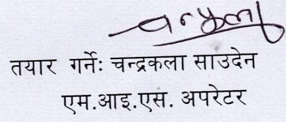 तयार गर्नेः चन्द्रकला साउदेन
एम.आइ.एस. अपरेटर